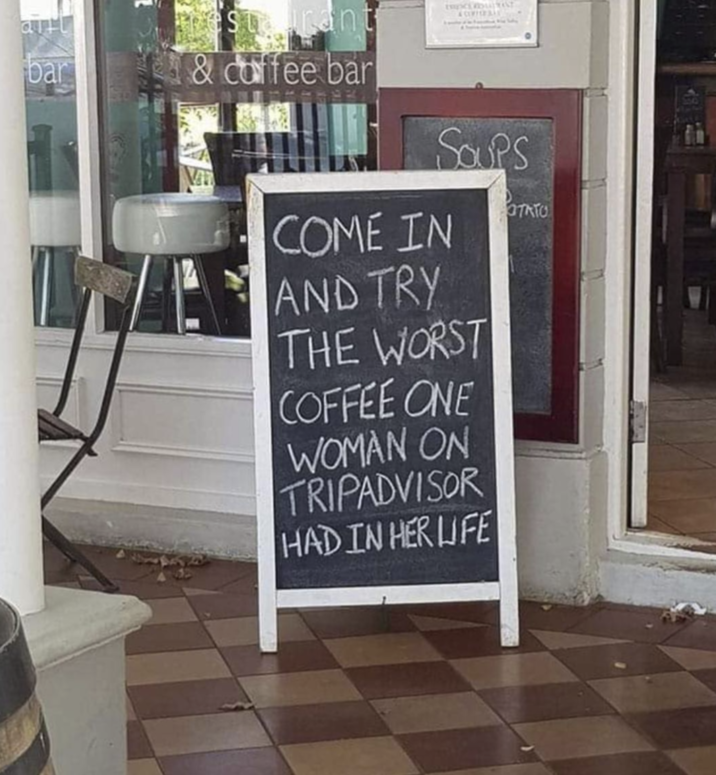 restaurant
bar
& coffee bar
SOUPS
COME IN
AND TRY
THE WORST
COFFEE ONE
WOMAN ON
TRIPADVISOR
HAD IN HER LIFE